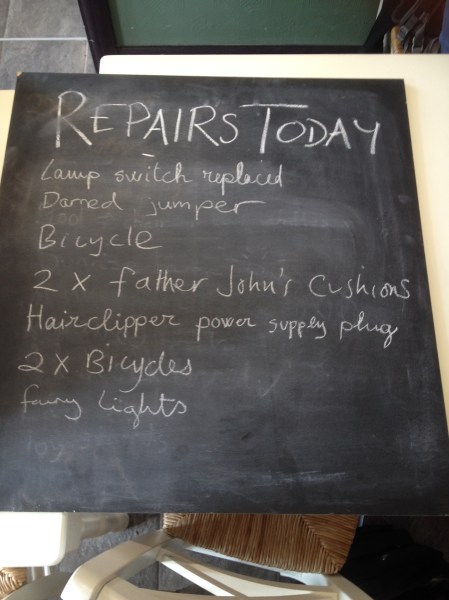 REPAIRS TODAY
Lamp switch replaced
Darned jumper
Bicycle
2 x father John's Cushions
Hairclipper power supply plug
2 x Bicycles
fairy Lights